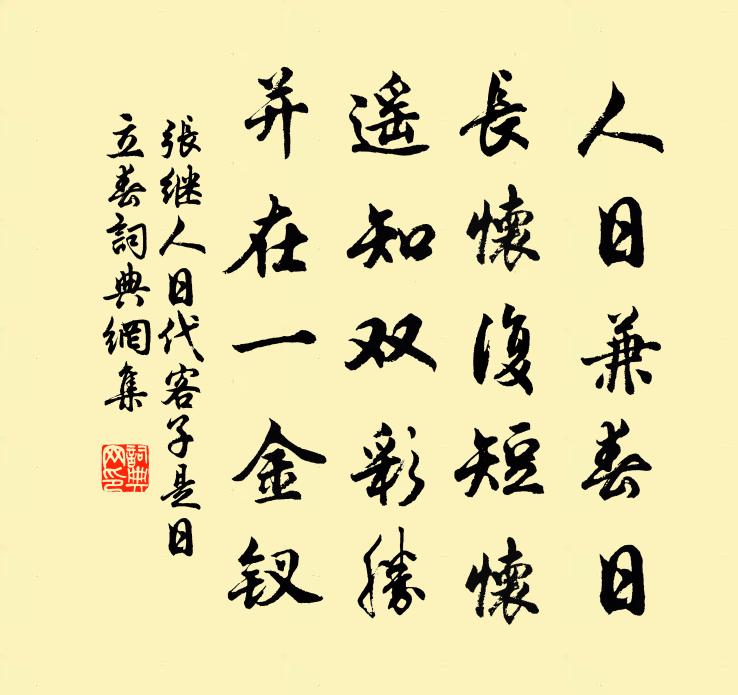 人日兼春日
長懷復短懷
遥知双彩勝
并在一金钗
張继人日代客子是日
立春詞典網集
詞典网印